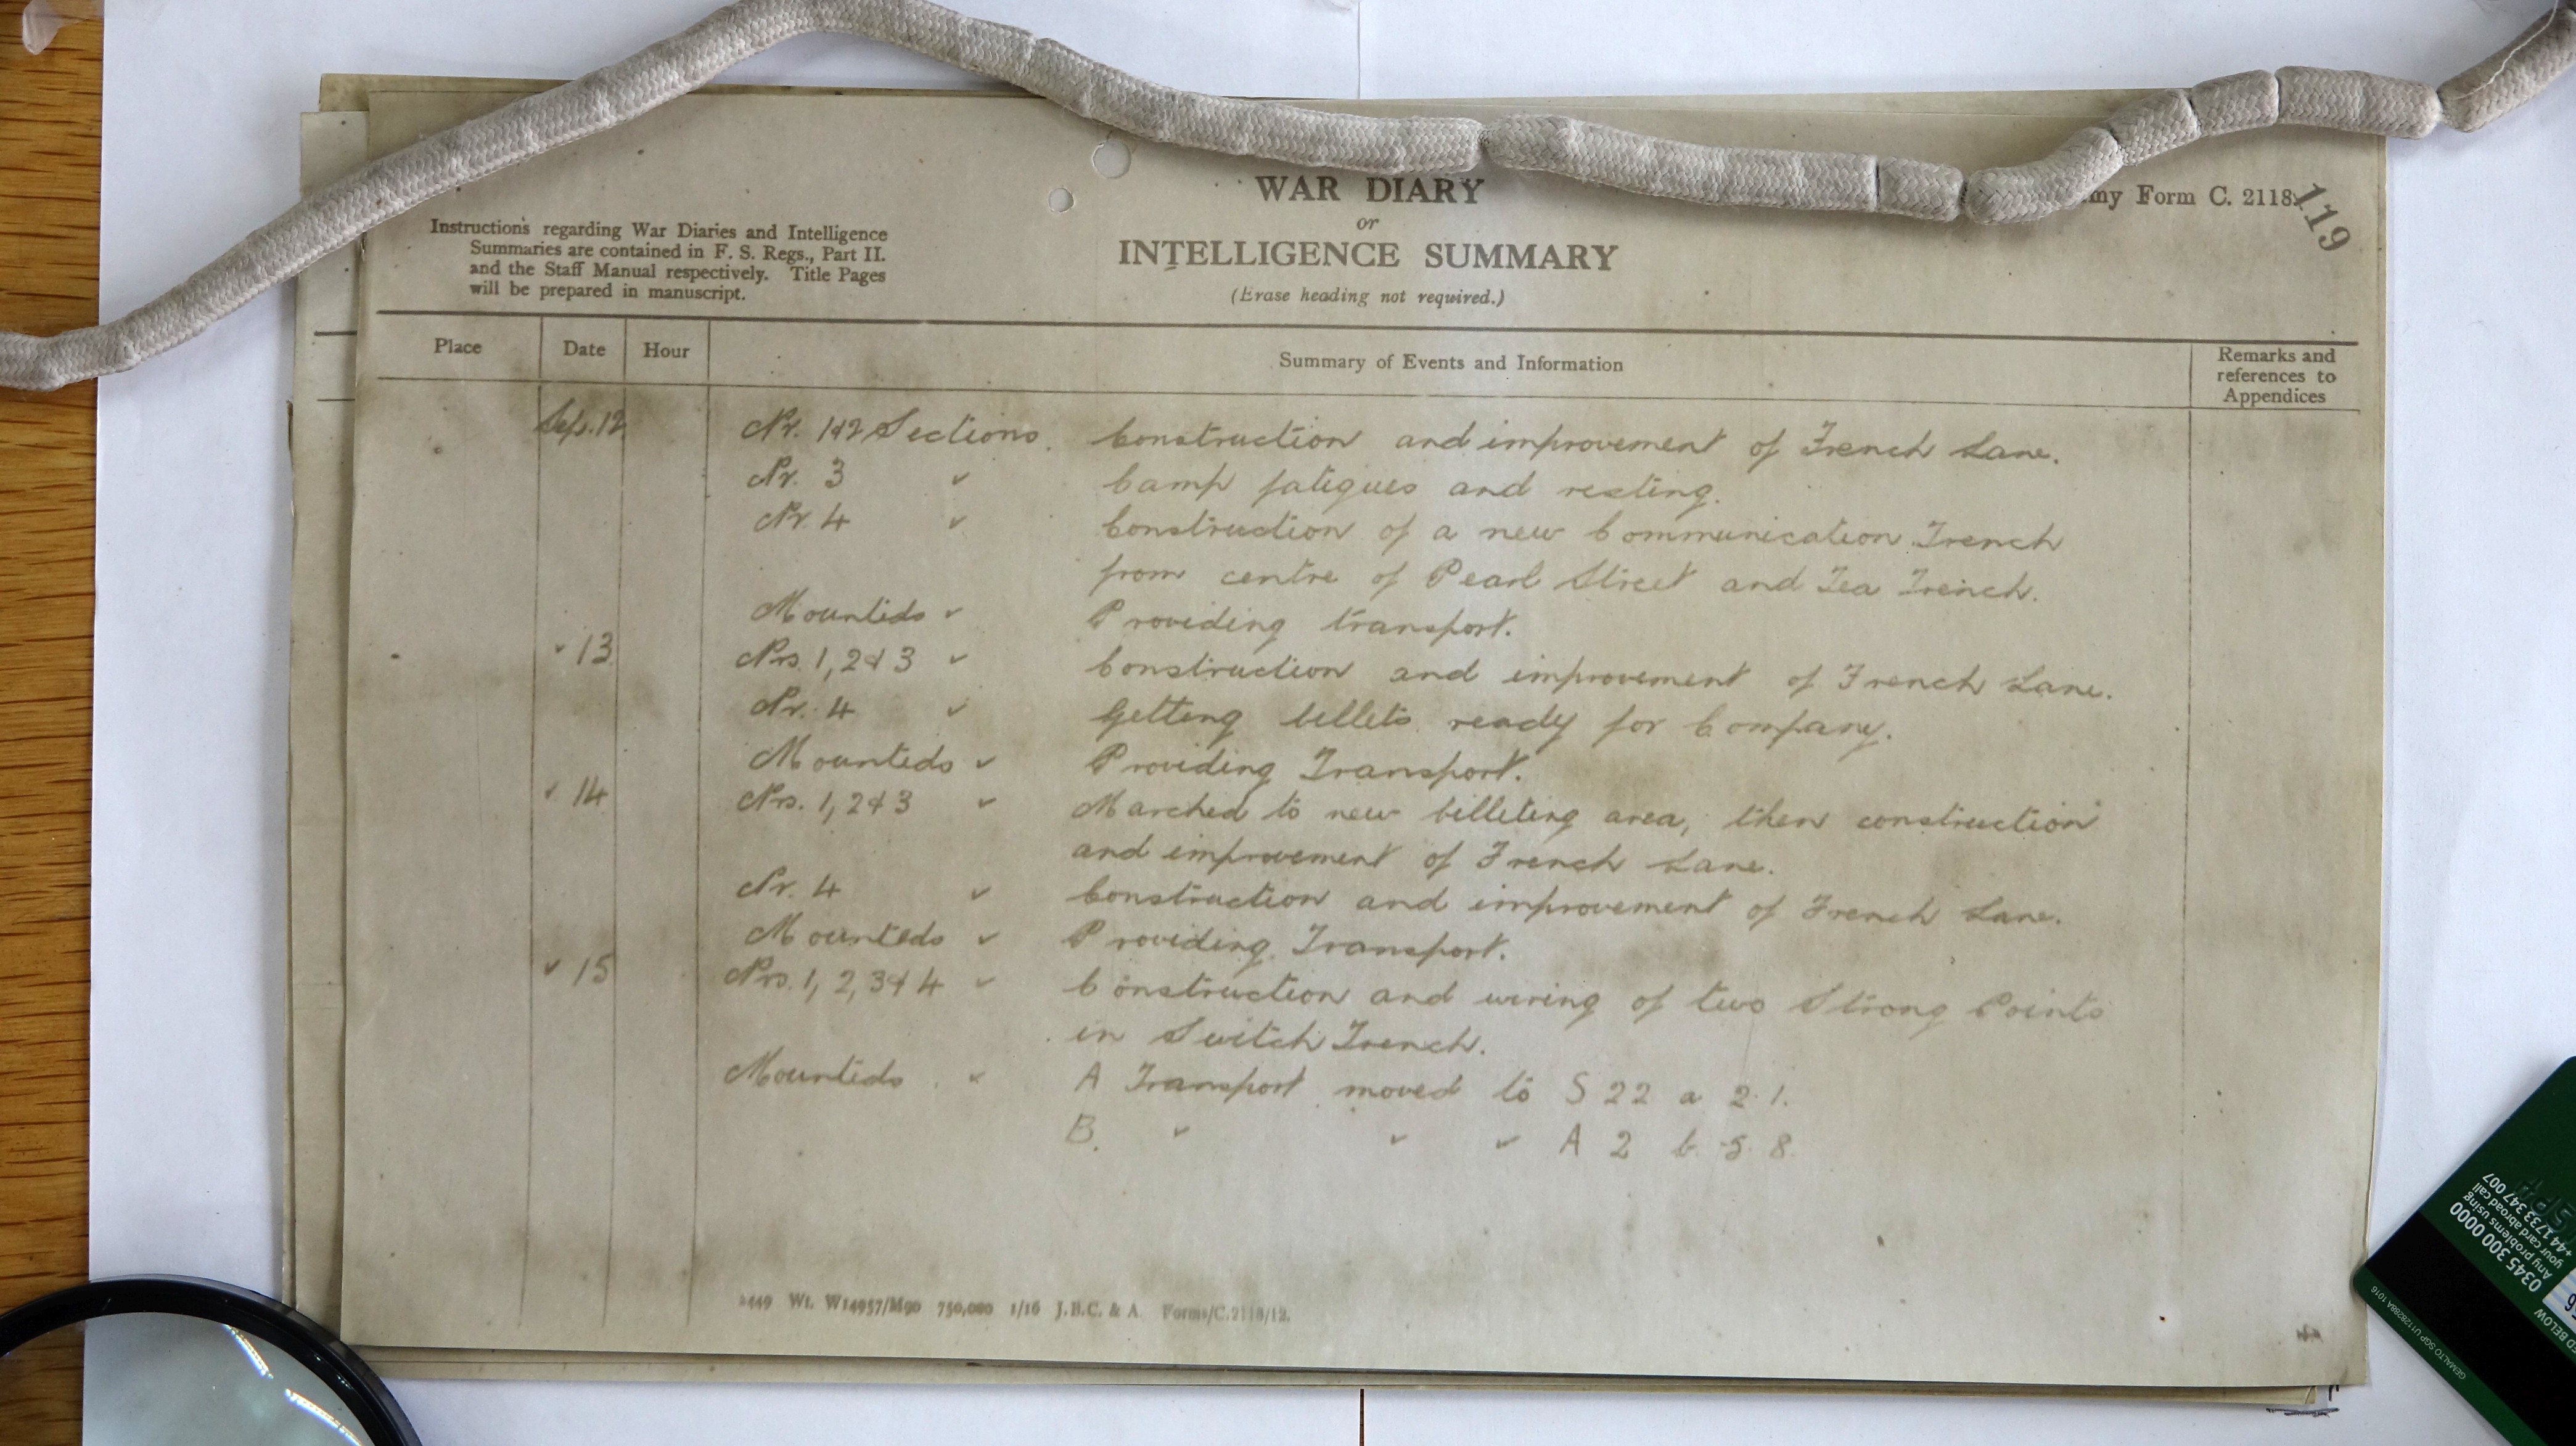 WAR DIARY
or
INTELLIGENCE SUMMARY
(Erase heading not required.)
my Form C. 2118.
119
Instructions regarding War Diaries and Intelligence
Summaries are contained in F. S. Regs., Part II.
and the Staff Manual respectively. Title Pages
will be prepared in manuscript.
Place Date Hour Summary of Events and Information Remarks and
references to
Appendices
Sep. 12 Nr. 1&2 Sections. Construction and improvement of French Lane.
Nr. 3 " Camp fatigues and resting.
Nr. 4 " Construction of a new Communication Trench
from centre of Pearl Street and Tea Trench.
Mounteds " Providing transport.
" 13 Nrs. 1, 2 & 3 " Construction and improvement of French Lane.
Nr. 4 " Getting billets ready for Company.
Mounteds " Providing Transport.
" 14 Nrs. 1, 2 & 3 " Marched to new billeting area, then construction
and improvement of French Lane.
Nr. 4 " Construction and improvement of French Lane.
Mounteds " Providing Transport.
" 15 Nrs. 1, 2, 3 & 4 " Construction and wiring of two Strong Points
in Switch Trench.
Mounteds " A Transport moved to S 22 a 2.1.
B. " " " A 2 b 5.8.
2449 Wt. W14957/M90 750,000 1/16 J.B.C. & A. Forms/C.2118/12.
Any problems using
your card abroad call
+44 1733 347 007
0345 300 0000
ED BELOW
GEMALTO SGP U1128288A 1016